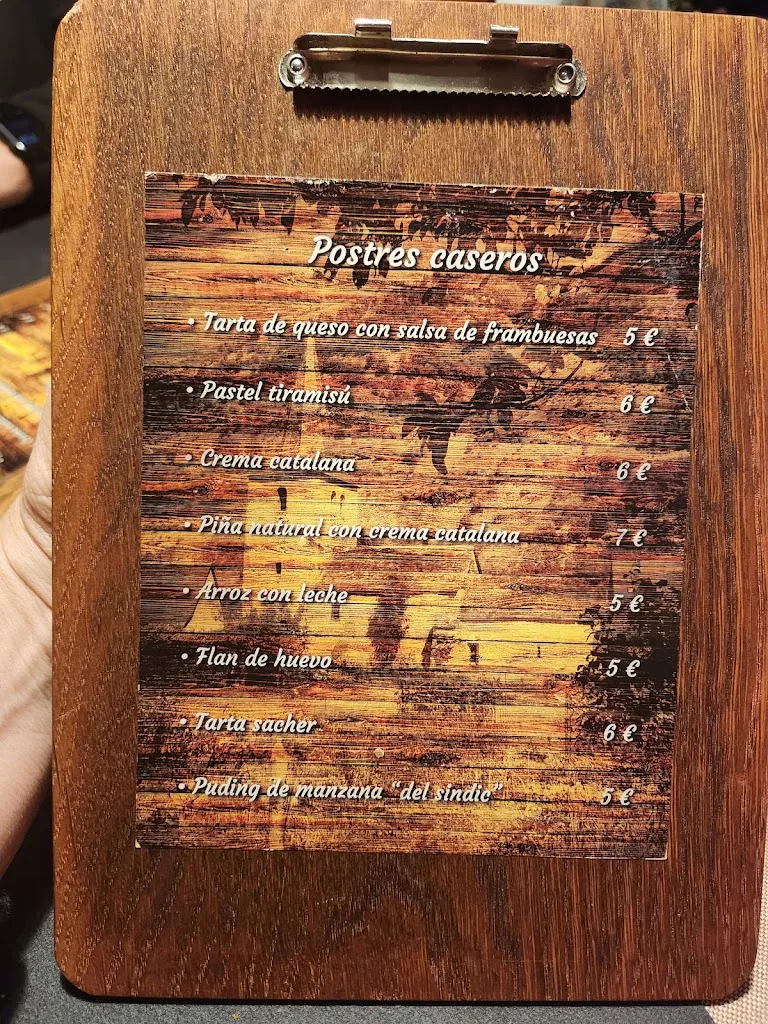 Postres caseros
• Tarta de queso con salsa de frambuesas 5 €
• Pastel tiramisú 6 €
• Crema catalana 6 €
• Piña natural con crema catalana 7 €
• Arroz con leche 5 €
• Flan de huevo 5 €
• Tarta sacher 6 €
• Puding de manzana “del sindic” 5 €